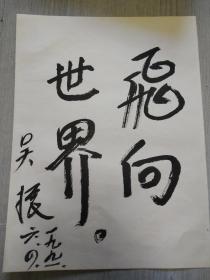 飛向
世界。
吴振
一九九一.
六.四.